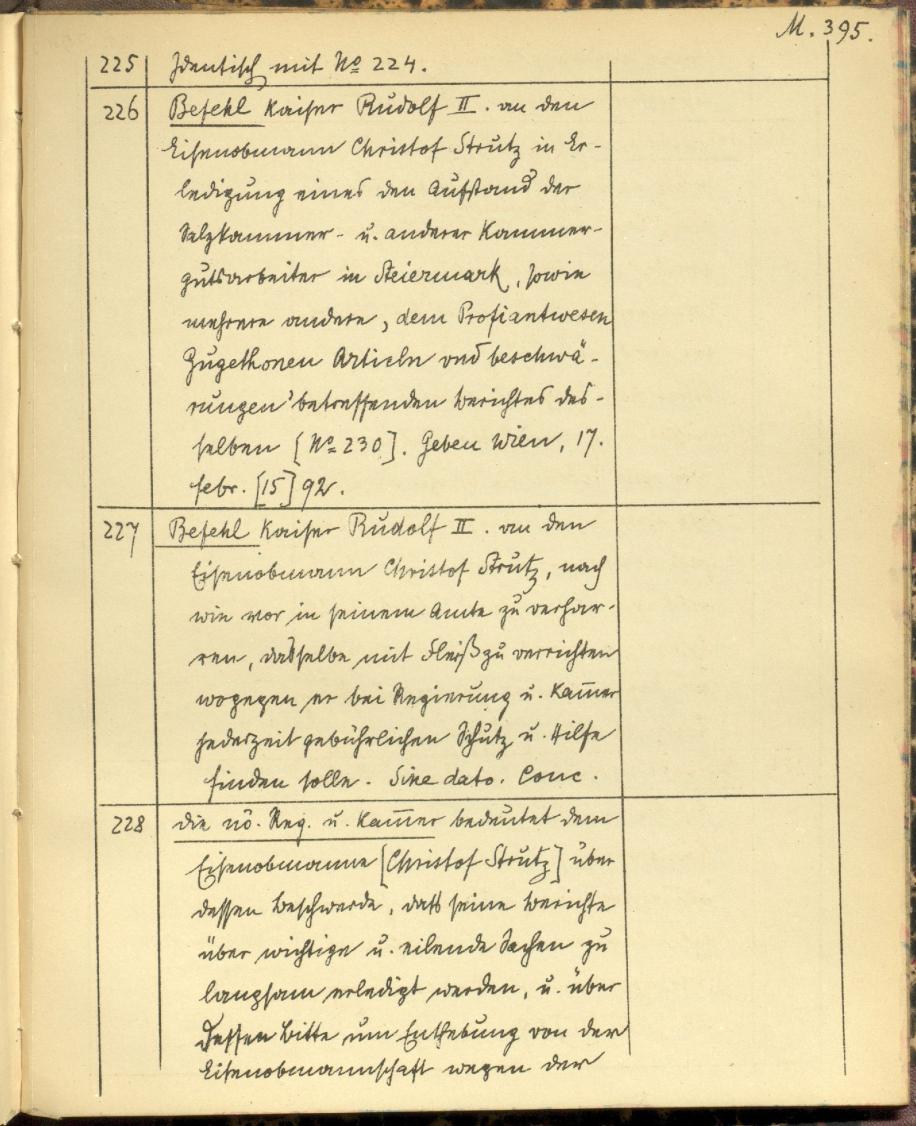 M. 395.
225 Identisch mit No 224.
226 Befehl Kaiser Rudolf II. an den
Eisenobmann Christof Strutz in Er-
ledigung eines den Aufstand der
Salzkammer- u. anderer Kammer-
gutsarbeiter in Steiermark, sowie
mehrere andere, dem Profiantwesen
Zugethonen Articln vnd beschwä-
rungen' betreffenden Berichtes des-
selben [No 230]. Geben Wien, 17.
Febr. [15]92.
227 Befehl Kaiser Rudolf II. an den
Eisenobmann Christof Strutz, nach
wie vor in seinem Amte zu verhar-
ren, dasselbe mit Fleiß zu verrichten
wogegen er bei Regierung u. Kam̄er
jederzeit gebührlichen Schutz u. Hilfe
finden solle. Sine dato. Conc.
228 Die nö. Reg. u. Kam̄er bedeutet dem
Eisenobmanne [Christof Strutz] über
dessen Beschwerde, dass seine Berichte
über wichtige u. eilende Sachen zu
langsam erledigt werden, u. über
Dessen Bitte um Enthebung von der
Eisenobmannschaft wegen der